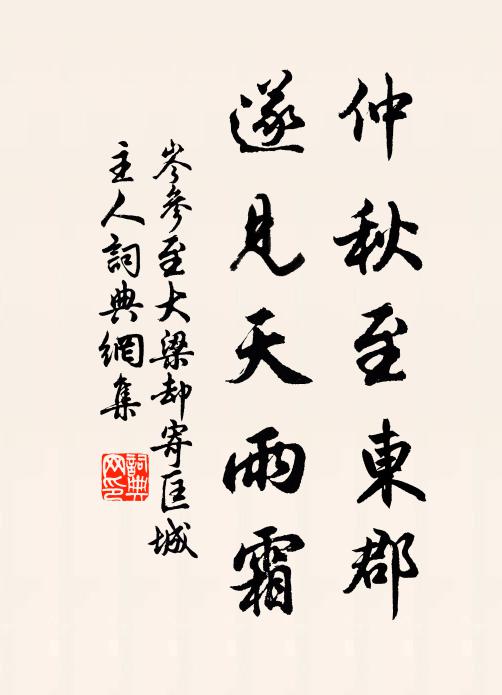 仲秋至東郡
遂見天雨霜
岑參至大梁却寄匡城
主人詞典網集
詞典
网印